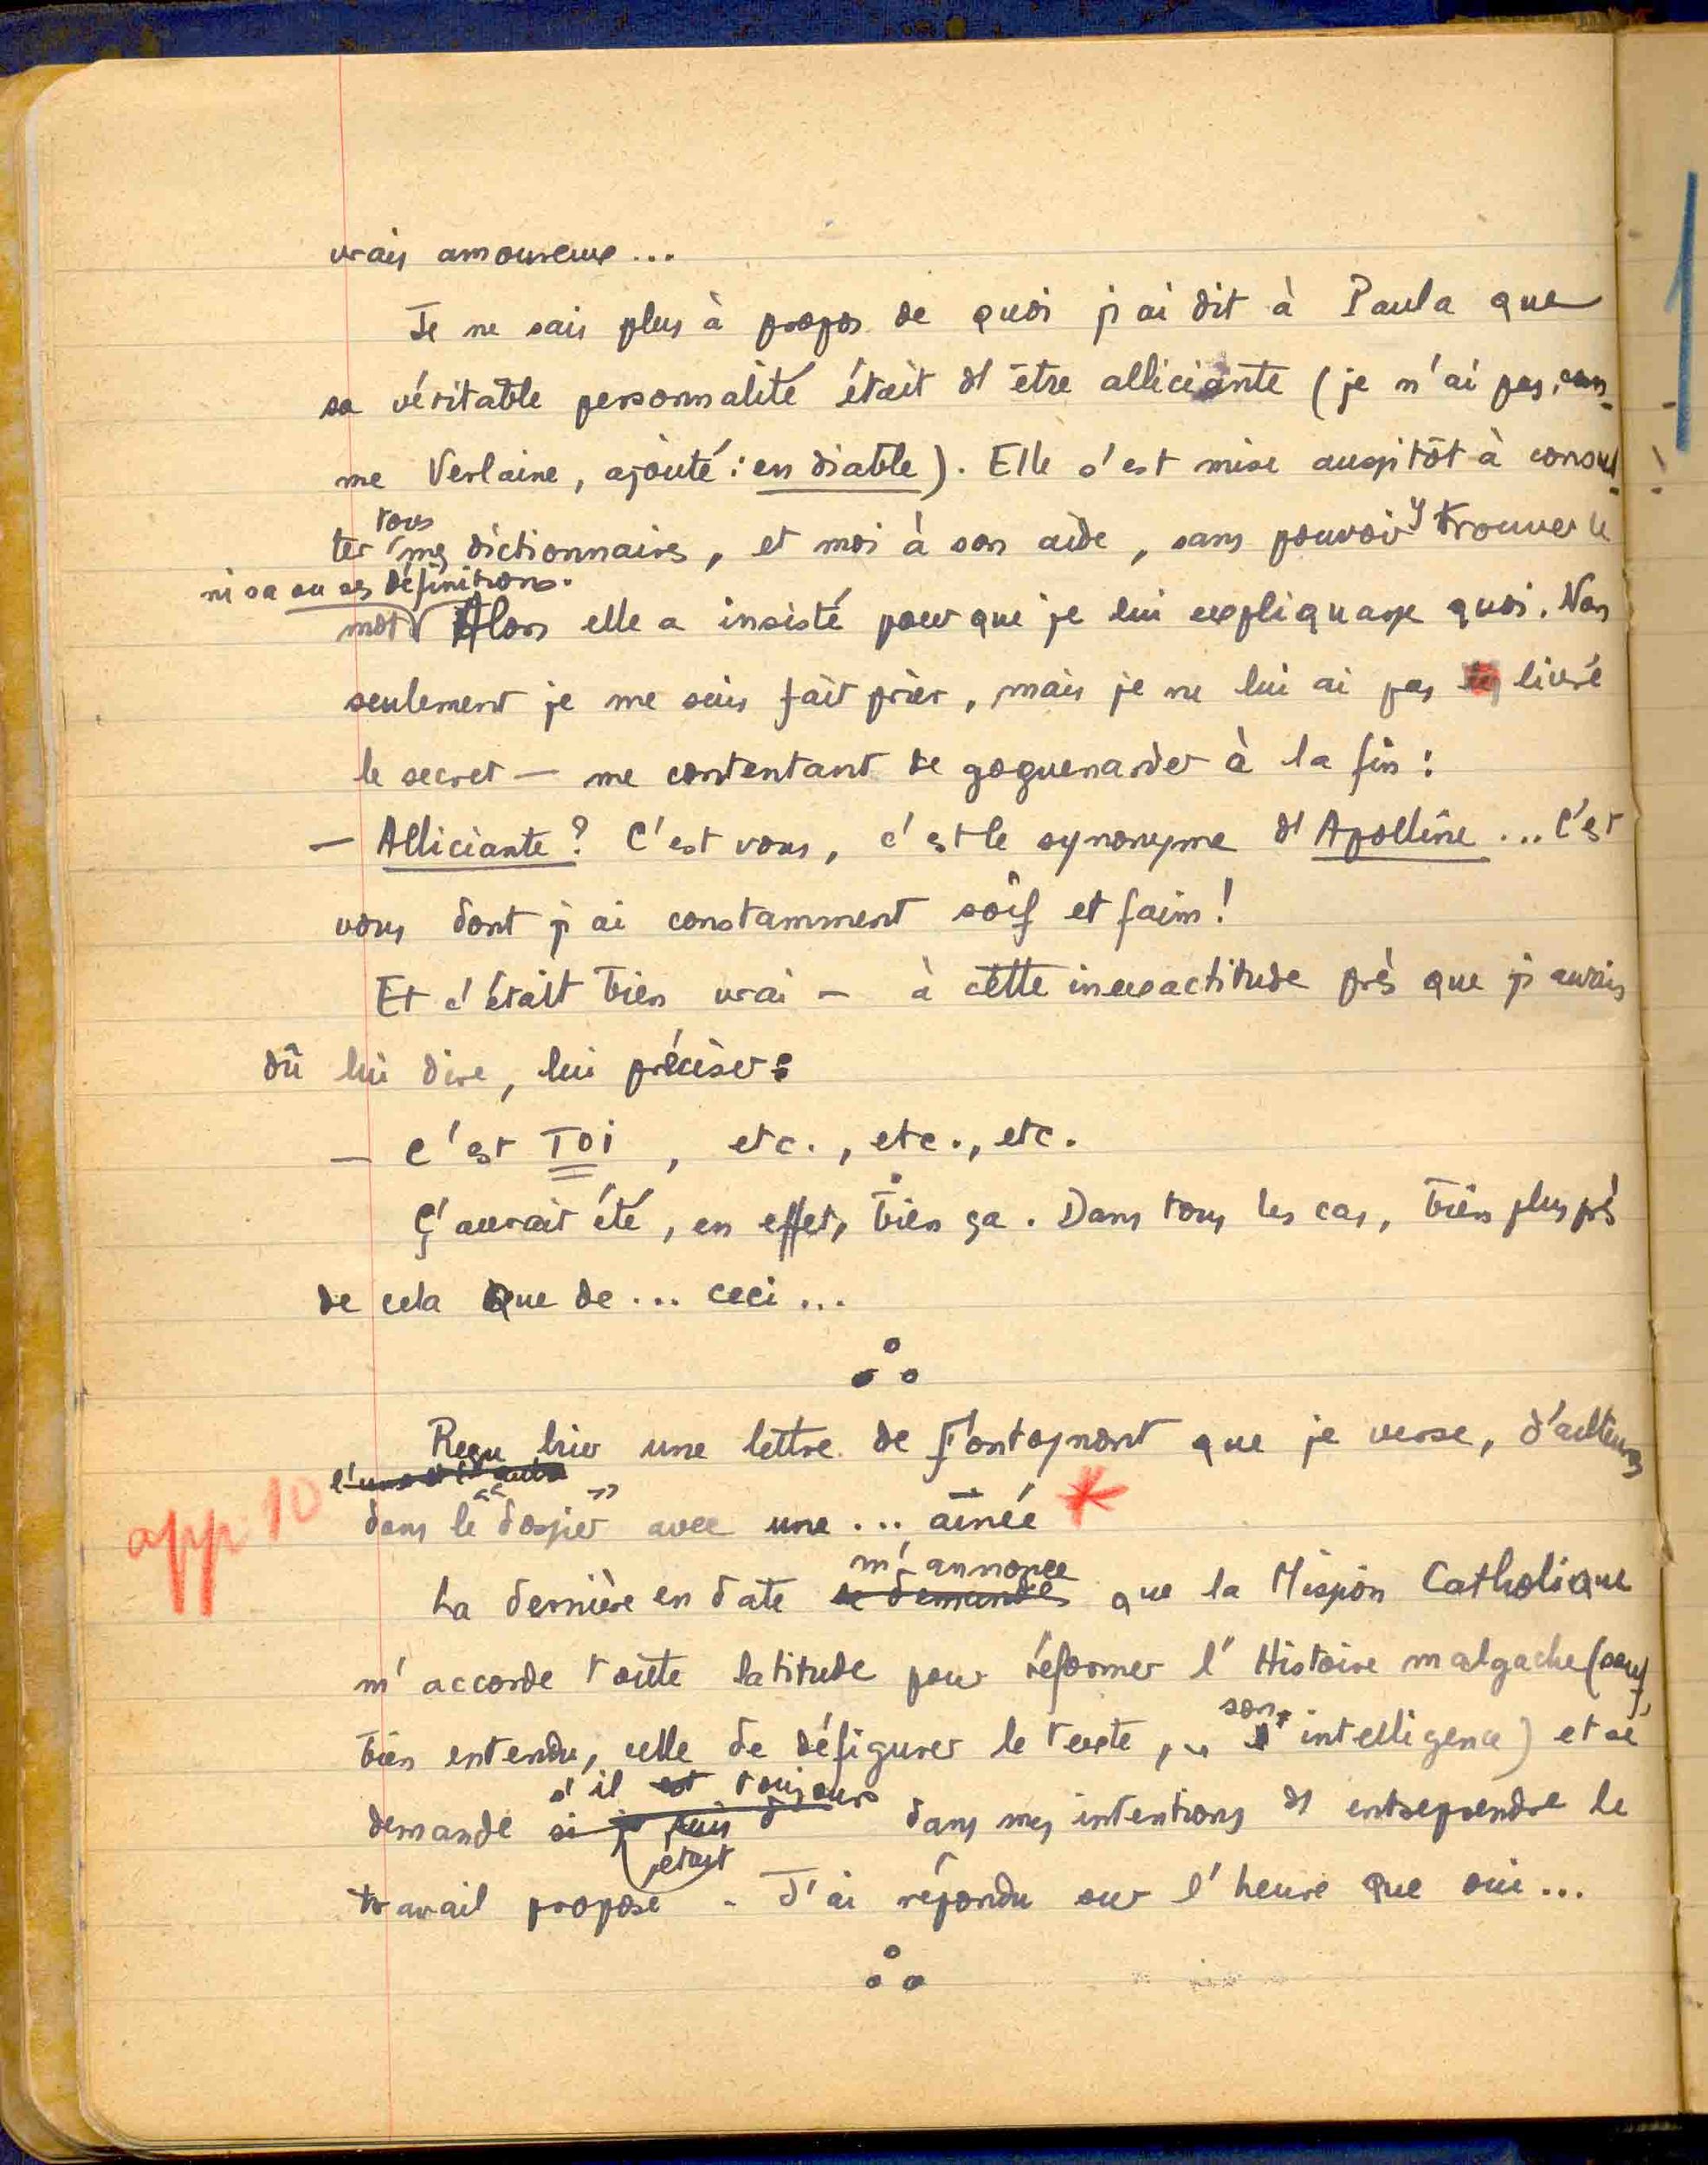 vrais amoureux...
Je ne sais plus à propos de quoi j'ai dit à Paula que
sa véritable personnalité était d'être alliciante (je n'ai pas, com-
me Verlaine, ajouté : en diable). Elle s'est mise aussitôt à consul-
ter tous mes dictionnaires, et moi à son aide, sans pouvoir y trouver le
ni sa ou ses définitions.
mot. Alors elle a insisté pour que je lui expliquasse quoi. Non
seulement je me suis fait prier, mais je ne lui ai pas livré
le secret — me contentant de goguenarder à la fin :
— Alliciante ? C'est vous, c'est le synonyme d'Apolline ... C'est
vous dont j'ai constamment soif et faim !
Et c'était bien vrai — à cette inexactitude près que j'aurais
dû lui dire, lui préciser :
— C'est TOI, etc., etc., etc.
Ç'aurait été, en effet, bien ça. Dans tous les cas, bien plus près
de cela que de ... ceci ...
Reçu hier une lettre de Fontoynont que je verse, d'ailleurs
l'une et l'autre
app. 10 dans le "dossier" avec une ... aînée *
m'annonce
La dernière en date se demande que la Mission Catholique
m'accorde toute latitude pour réformer l'Histoire malgache (sauf,
son
bien entendu, celle de défigurer le texte, intelligence) et se
s'il est toujours
demande si je suis d dans mes intentions d'entreprendre le
était
travail proposé. J'ai répondu sur l'heure que oui...